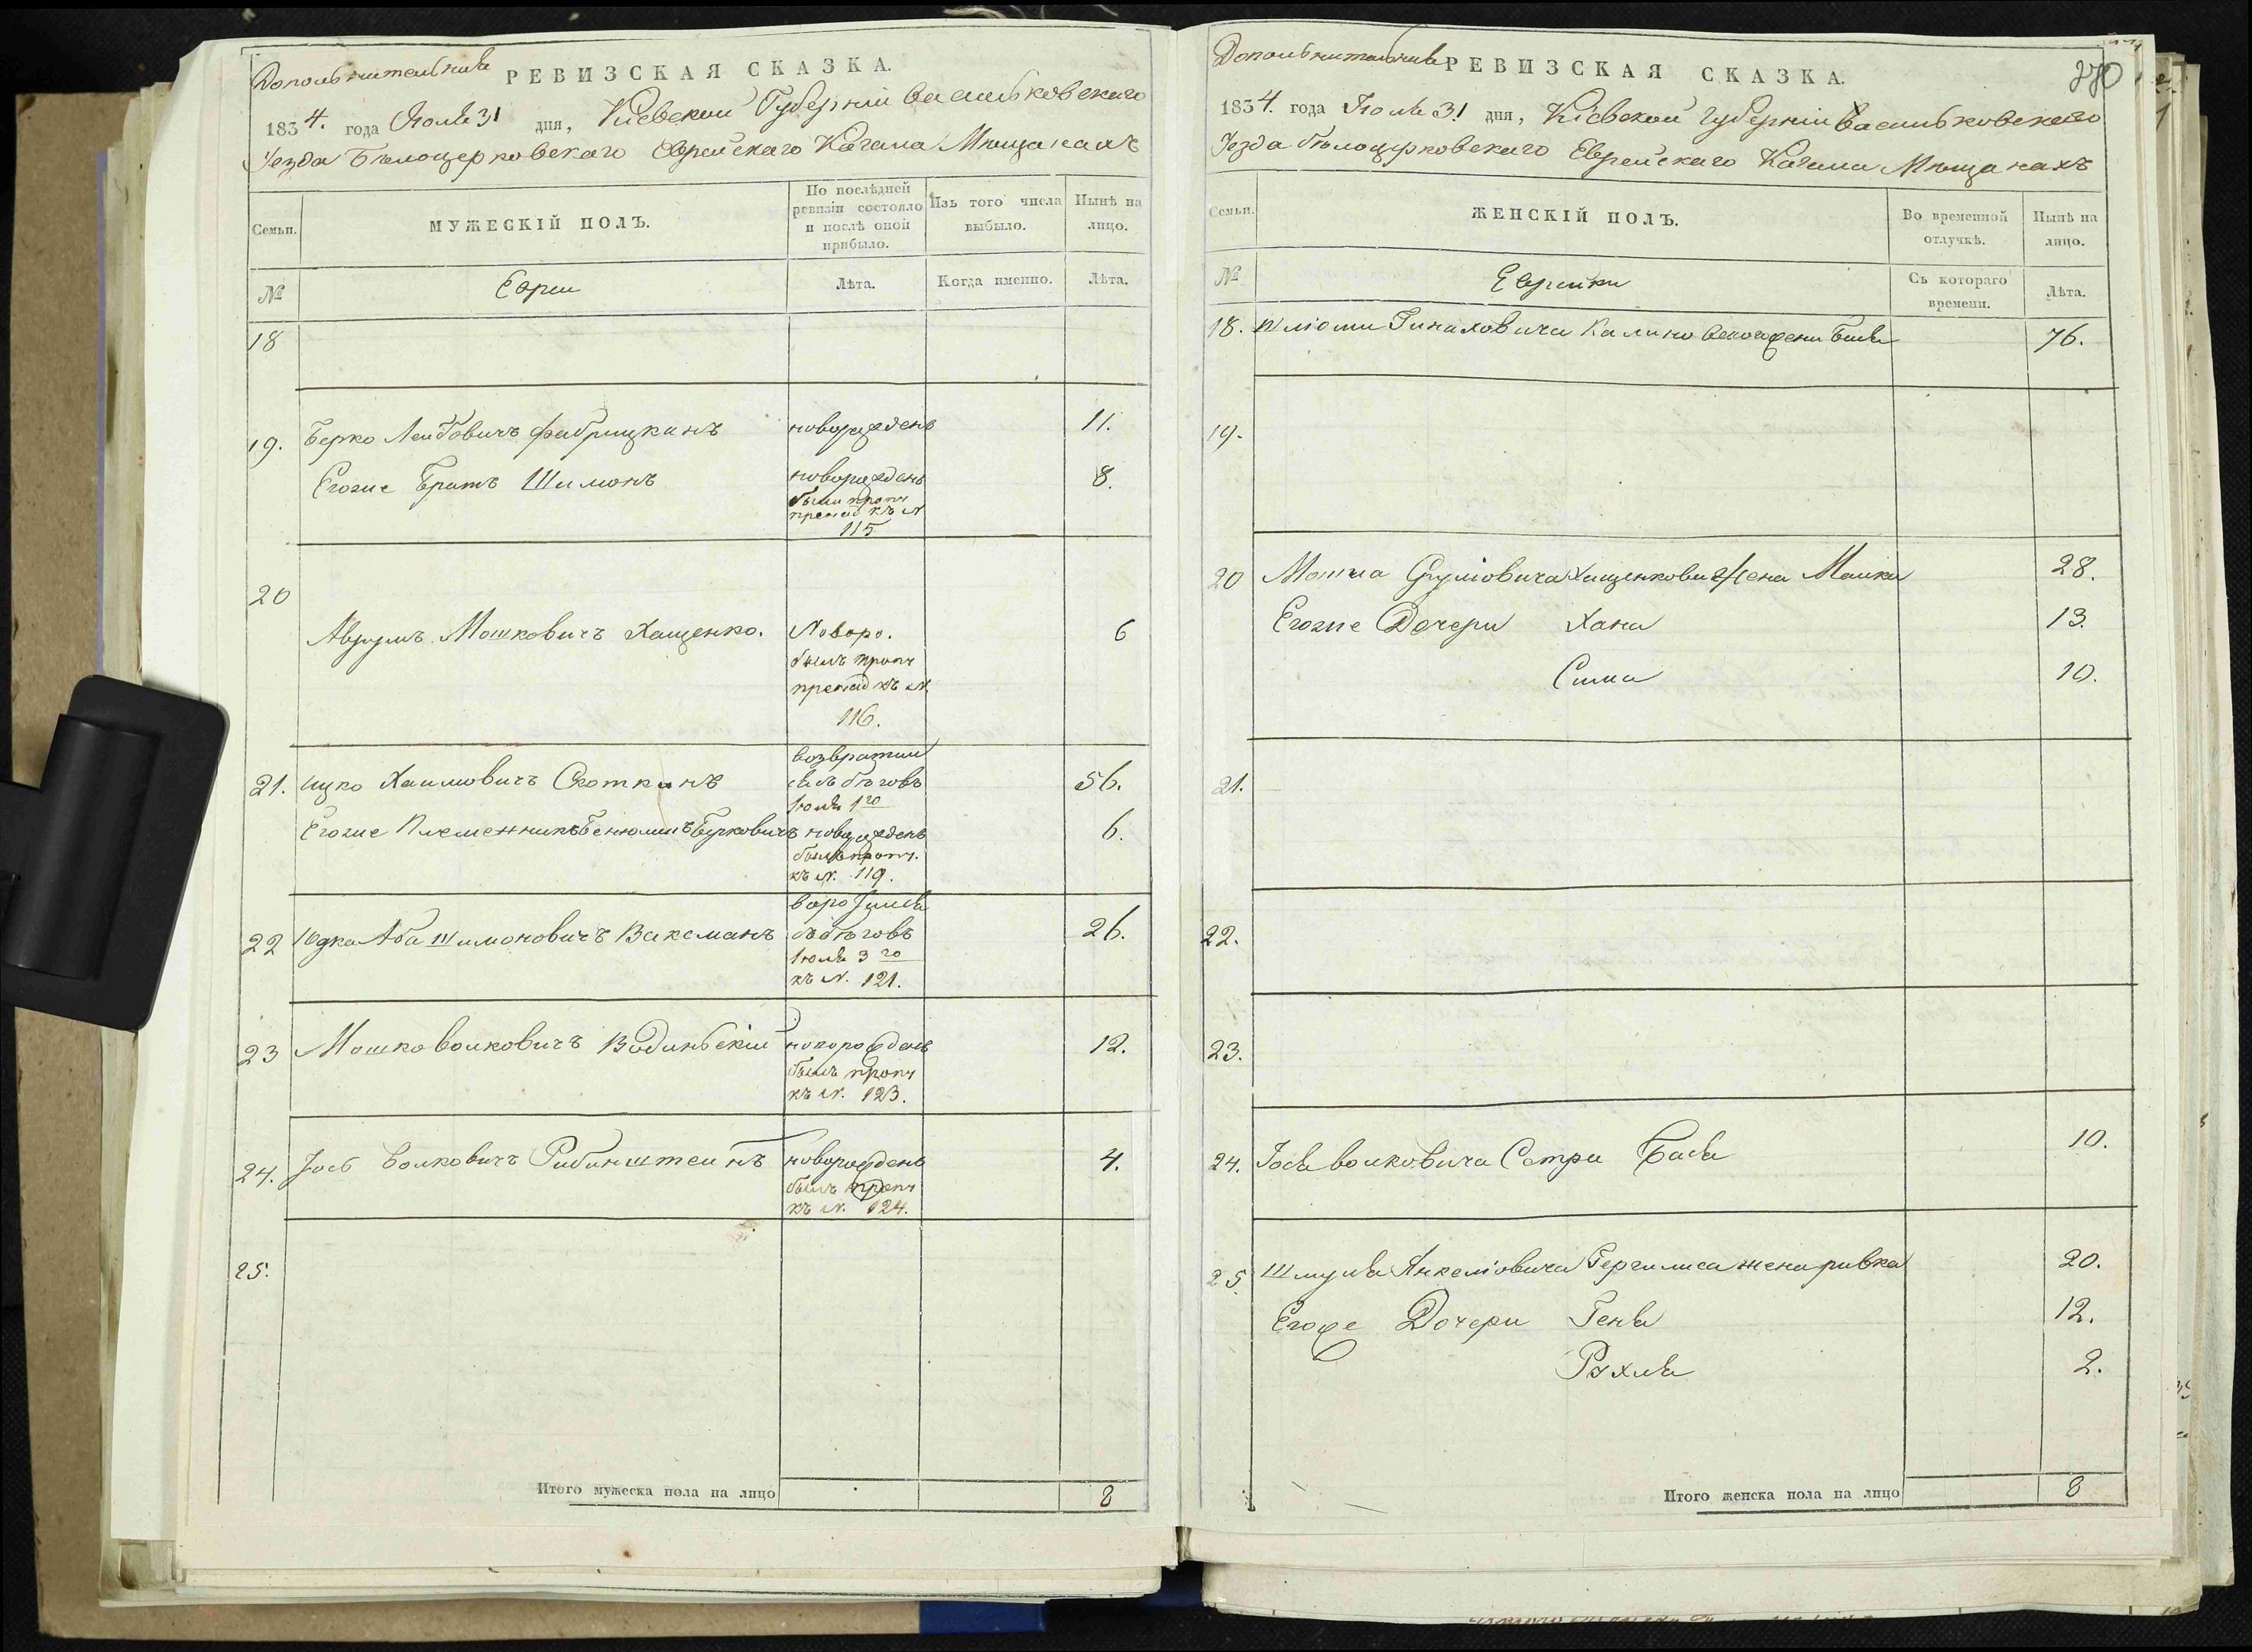 Дополнительная РЕВИЗСКАЯ СКАЗКА.
1834. года Июля 31 дня, Кіевской Губерніи Васильковскаго
Уезда Белоцерковскаго Еврейскаго Кагала Мещанахъ
Семьи.
МУЖЕСКІЙ ПОЛЪ.
По послѣдней
ревизіи состояло
и послѣ оной
прибыло.
Изъ того числа
выбыло.
Нынѣ на
лицо.
№
Евреи
Лѣта.
Когда именно.
Лѣта.
18
19. Берко Лейбовичъ Фабрицканъ новорожденъ 11.
Егоже Братъ Шимонъ новорожденъ 8.
были проп
къ N
115
20
Аврумъ Мошковичъ Хащенко. Новоро. 6
былъ проп
къ N
116.
возврати
21. Ицко Хаимовичъ Скотканъ съ беговъ 56.
Июля 1го
Егоже Племенникъ Бенюминъ Берковичъ новорожденъ 6.
былъ проп.
къ N. 119.
22 Юдка Аба Шимоновичъ Ваксманъ съ беговъ 26.
Июля 3го
къ N. 121.
23 Мошко Волковичъ Водинскій новорожденъ 12.
былъ проп
къ N. 123.
24. Іось Волковичъ Рибинштеинъ новорожденъ 4.
былъ проп
къ N. 124.
25.
Итого мужеска пола на лицо 8
Дополнительная РЕВИЗСКАЯ СКАЗКА. 270
1834 года Июля 31 дня, Кіевской Губерніи Васильковскаго
Уезда Белоцерковскаго Еврейскаго Кагала Мещанахъ
Семьи.
ЖЕНСКІЙ ПОЛЪ.
Во временной
отлучкѣ.
Нынѣ на
лицо.
№
Еврейки
Съ котораго
времени.
Лѣта.
18. Шлюми Гинаховича Калиновского жена Бейля 76.
19.
20 Мошка Сруліовича Хащенкови Жена Малка 28.
Егоже Дочери Хана 13.
Сима 10.
21.
22.
23.
24. Іося Волковича Сетра Бася 10.
25. Шмуля Анкеліовича Гергилиса жена ривка 20.
Егоже Дочери Геня 12.
Рухля 2.
Итого женска пола на лицо 8